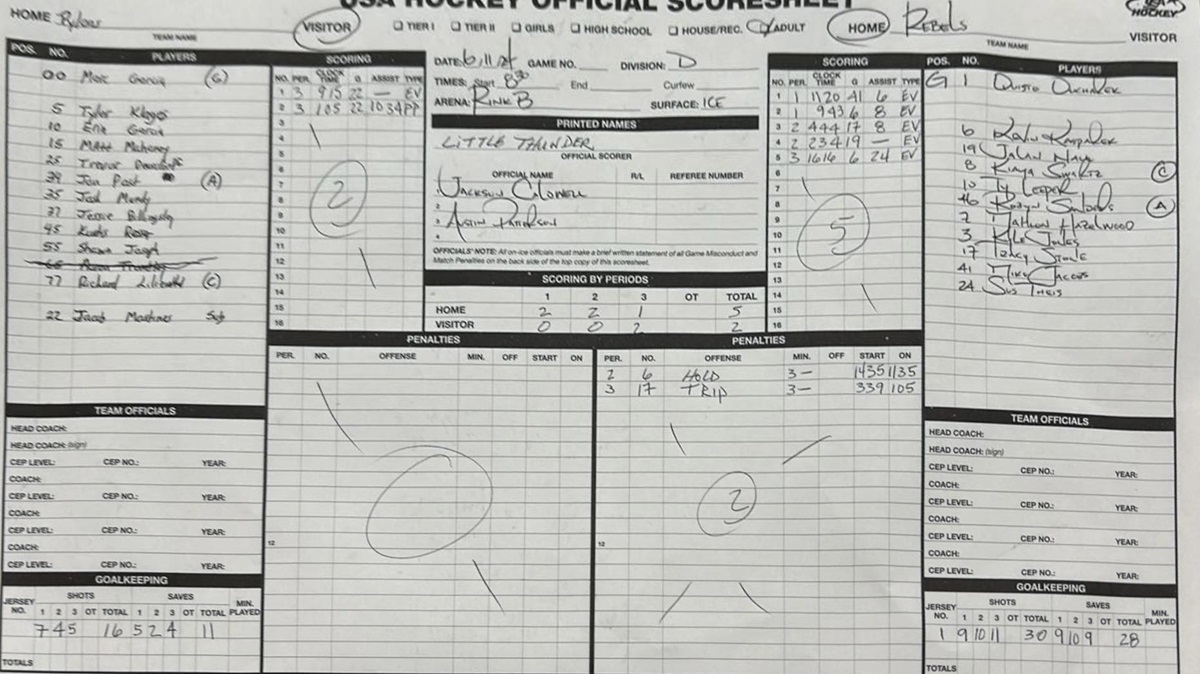 USA HOCKEY OFFICIAL SCORESHEET
HOCKEY
HOME
VISITOR
TEAM NAME
☐ TIER I ☐ TIER II ☐ GIRLS ☐ HIGH SCHOOL ☐ HOUSE/REC. ADULT
HOME REBELS
TEAM NAME
VISITOR
POS. NO. PLAYERS
00 Marc Garcia (G)
5 Tyler
10 Eric Garcia
15 Matt
25 Trevor
39 Jon Post (A)
35 Josh Mundy
27 Jessie
95
55 Shawn Joseph
77 Richard (C)
22 Jacob Sub
SCORING
NO. PER. CLOCK TIME G ASSIST TYPE
1 3 915 22 — EV
2 3 105 22 10 34 PP
3
4
5
6
7
8
9
10
11
12
13
14
15
16
2
DATE: 6/11/ GAME NO. DIVISION: D
TIMES: Start 8 30 End Curfew
ARENA: RINK B SURFACE: ICE
PRINTED NAMES
LITTLE THUNDER
OFFICIAL SCORER
OFFICIAL NAME R/L REFEREE NUMBER
1. JACKSON
2
3 AUSTIN
4
OFFICIALS' NOTE: All on-ice officials must make a brief written statement of all Game Misconduct and
Match Penalties on the back side of the top copy of this scoresheet.
SCORING BY PERIODS
1 2 3 OT TOTAL
HOME 2 2 1 5
VISITOR 0 0 2 2
SCORING
NO. PER. CLOCK TIME G ASSIST TYPE
1 1 1120 41 6 EV
2 1 943 6 8 EV
3 2 444 17 8 EV
4 2 234 19 — EV
5 3 1616 6 24 EV
6
7
8
9
10
11
12
13
14
15
16
5
POS. NO. PLAYERS
G 1
6
19
8 (C)
10 Ty
46 (A)
2 HAZELWOOD
3 KYLE
17 STONE
41 MIKE JACOBS
24
PENALTIES
PER. NO. OFFENSE MIN. OFF START ON
12
PENALTIES
PER. NO. OFFENSE MIN. OFF START ON
2 6 HOLD 3 — 1435 1135
3 17 TRIP 3 — 339 105
2
12
TEAM OFFICIALS
HEAD COACH:
HEAD COACH: (sign)
CEP LEVEL: CEP NO.: YEAR:
COACH:
CEP LEVEL: CEP NO.: YEAR:
COACH:
CEP LEVEL: CEP NO.: YEAR:
COACH:
CEP LEVEL: CEP NO.: YEAR:
GOALKEEPING
JERSEY NO. SHOTS SAVES MIN. PLAYED
1 2 3 OT TOTAL 1 2 3 OT TOTAL
7 4 5 16 5 2 4 11
TOTALS
TEAM OFFICIALS
HEAD COACH:
HEAD COACH: (sign)
CEP LEVEL: CEP NO.: YEAR:
COACH:
CEP LEVEL: CEP NO.: YEAR:
COACH:
CEP LEVEL: CEP NO.: YEAR:
COACH:
CEP LEVEL: CEP NO.: YEAR:
GOALKEEPING
JERSEY NO. SHOTS SAVES MIN. PLAYED
1 2 3 OT TOTAL 1 2 3 OT TOTAL
1 9 10 11 30 9 10 9 28
TOTALS